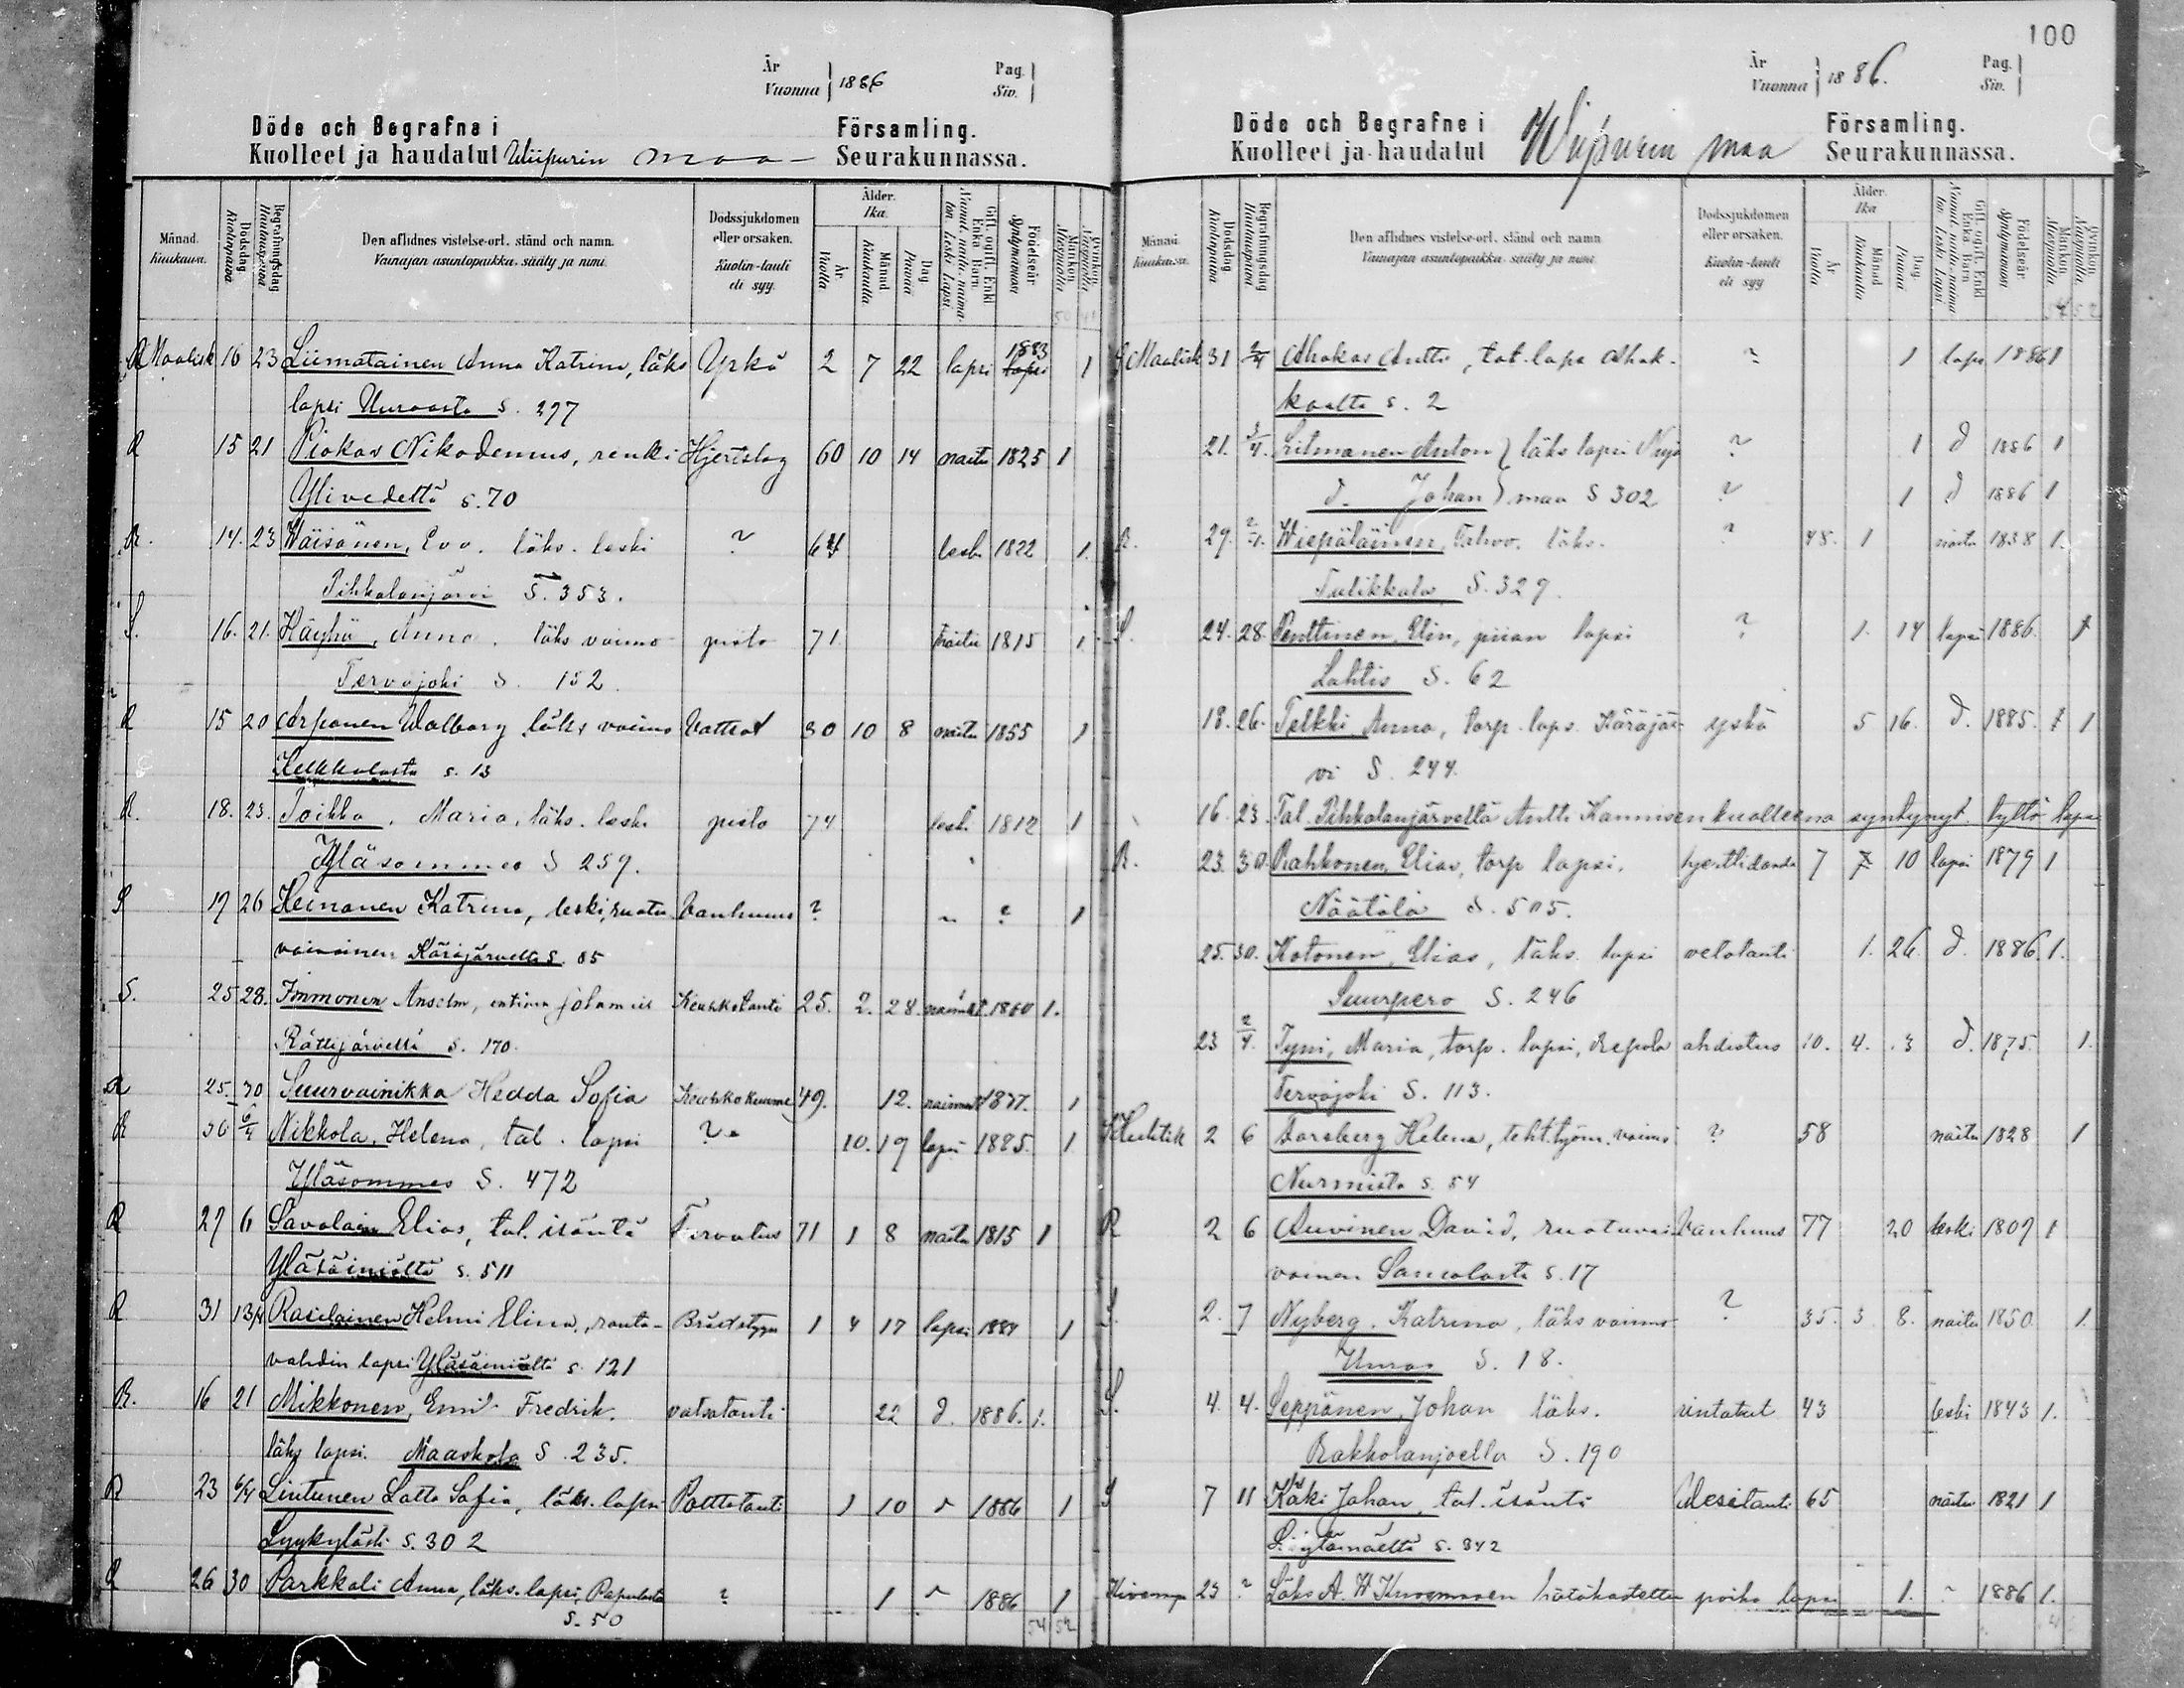 År
Vuonna 1886
Pag.
Siv.
Döde och Begrafne i Församling.
Kuolleet ja haudatut Wiipurin maa- Seurakunnassa.
Månad. Kuukausi.
Dödsdag Kuolinpäivä
Begrafningsdag Hautauspäivä
Den aflidnes vistelse-ort. stånd och namn.
Vainajan asuntopaikka. sääty ja nimi
Dödssjukdomen eller orsaken.
Kuolin-tauti eli syy.
Ålder. Ikä.
År Vuotta
Månad Kuukautta
Dag Päivää
Gift, ogift. Enkl. Enka Barn
Födelseår Syntymävuosi
Mankön Miespuolta
50 41
R Maalisk 16 23 Liimatainen Anna Katrina, läks Yskä 2 7 22 lapsi 1883 lapsi 1
lapsi Uuraasta s. 297
R 15 21 Piokas Nikodemus, renki Hjertslag 60 10 14 naitu 1825 1
Ylivedeltä s. 70
R. 14. 23 Wäisänen, Eva. läks. leski ? 64 leski 1822 1.
Pihkalanjärvi S. 353.
S. 16. 21. Häyhä, Anna. läks vaimo pisto 71 naitu 1815 1
Tervajoki S. 152.
R 15 20 Arponen Walborg läks vaimo Vattsot 30 10 8 naitu 1855 1
Kelkkalasta s. 13
R. 18. 23. Toikka, Maria, läks. leski pisto 74 leski 1812 1
Yläsommee S 259.
S 17 26 Heinonen Katrina, leski, ruotu Vanhuus ? " ? 1
vaivainen Käräjärveltä S. 85
S. 25 28. Immonen Anselm, entinen Keuhkotauti 25. 2. 28. 1860 1.
Rättijärveltä S. 170.
R 25. 30 Suurvainikka Hedda Sofia Keuhkokuume 49. 12. 1837. 1
R 30 6/4 Nikkola, Helena, tal. lapsi ? 10. 19 lapsi 1885. 1
Yläsommee S. 472
R 27 6 Savolainen Elias, tal. isäntä Turvotus 71 1 8 naitu 1815 1
Yläsäiniöltä s. 511
R 31 13/4 Rasilainen Helmi Elina, rauta- 1 4 17 lapsi 1884 1
vahdin lapsi Yläsäiniöltä s. 121
R. 16 21 Mikkonen, Emil Fredrik. vatsatauti 22 d. 1886. 1.
läks lapsi. Maaskola S. 235.
R 23 6/4 Lintunen Lotta Sofia, läks. lapsi Polttotauti 1 10 " 1886 1
Lyykylästä s. 302
R 26 30 Parkkali Anna, läks. lapsi, Papulasta ? 1 " 1886 1
s. 50
54 52
100
År
Vuonna 1886.
Pag.
Siv.
Döde och Begrafne i Församling.
Kuolleet ja haudatut Wiipurin maa Seurakunnassa.
Månad. Kuukausi.
Dödsdag Kuolinpäivä
Begrafningsdag Hautauspäivä
Den aflidnes vistelse-ort. stånd och namn
Vainajan asuntopaikka. sääty ja nimi
Dödssjukdomen eller orsaken.
Kuolin-tauti eli syy
Ålder. Ikä
År Vuotta
Månad Kuukautta
Dag Päivää
Gift, ogift. Enkl. Enka Barn
Födelseår Syntymävuosi
Mankön Miespuolta
54 52
S Maalisk 31 2/4 Ahokas Antti, tal. lapsi Ahok- ? 1 lapsi 1886 1
kaalta s. 2
21. 3/4. Litmanen Anton } läks lapsi ? 1 d 1886 1
d. Johan } maa S 302 ? 1 d 1886 1
R. 29. 2/4. Wiepäläinen, läks. ? 48. 1 naitu 1838 1.
Tulikkala S. 329.
S. 24. 28. Penttinen, Elin, piian lapsi ? 1. 14 lapsi 1886. 1
Lahtis S. 62
18. 26. Telkki Anna, torp. laps. Käräjär- yskä 5 16. d. 1885. 1 1
vi S. 244.
16. 23. Tal. Pihkalanjärveltä Antti Kaunisen kuolleena syntynyt tyttö lapsi
R. 23. 30. Rahkonen, Elias, torp lapsi. 7 7 10 lapsi 1879 1
Näätälä S. 505.
25. 30. Kotonen, Elias, läks. lapsi velotauti 1. 26. d. 1886 1.
Suurpero S. 246
23 2/4. Tyni, Maria, torp. lapsi, Repola ahdistus 10. 4. 3 d. 1875. 1.
Tervajoki S. 113.
Huhtik 2 6 Forsberg Helena, teht. työm. vaimo ? 58 naitu 1828 1
Nurmista s. 54
R 2 6 Auvinen David, ruotuvai- Vanhuus 77 20 leski 1809 1
vainen Samolasta s. 17
S. 2. 7 Nyberg. Katrina, läks vaimo ? 35. 3 8. naitu 1850 1.
Uuras S. 18.
S. 4. 4. Seppänen, Johan läks. rintataut 43 leski 1843 1.
Rakkolanjoella S. 190
S 7 11 Käki Johan, tal. isäntä Wesitauti 65 naitu 1821 1
s. 342
23 ? Läks A. W hätäkastettu poika lapsi 1. " 1886 1.